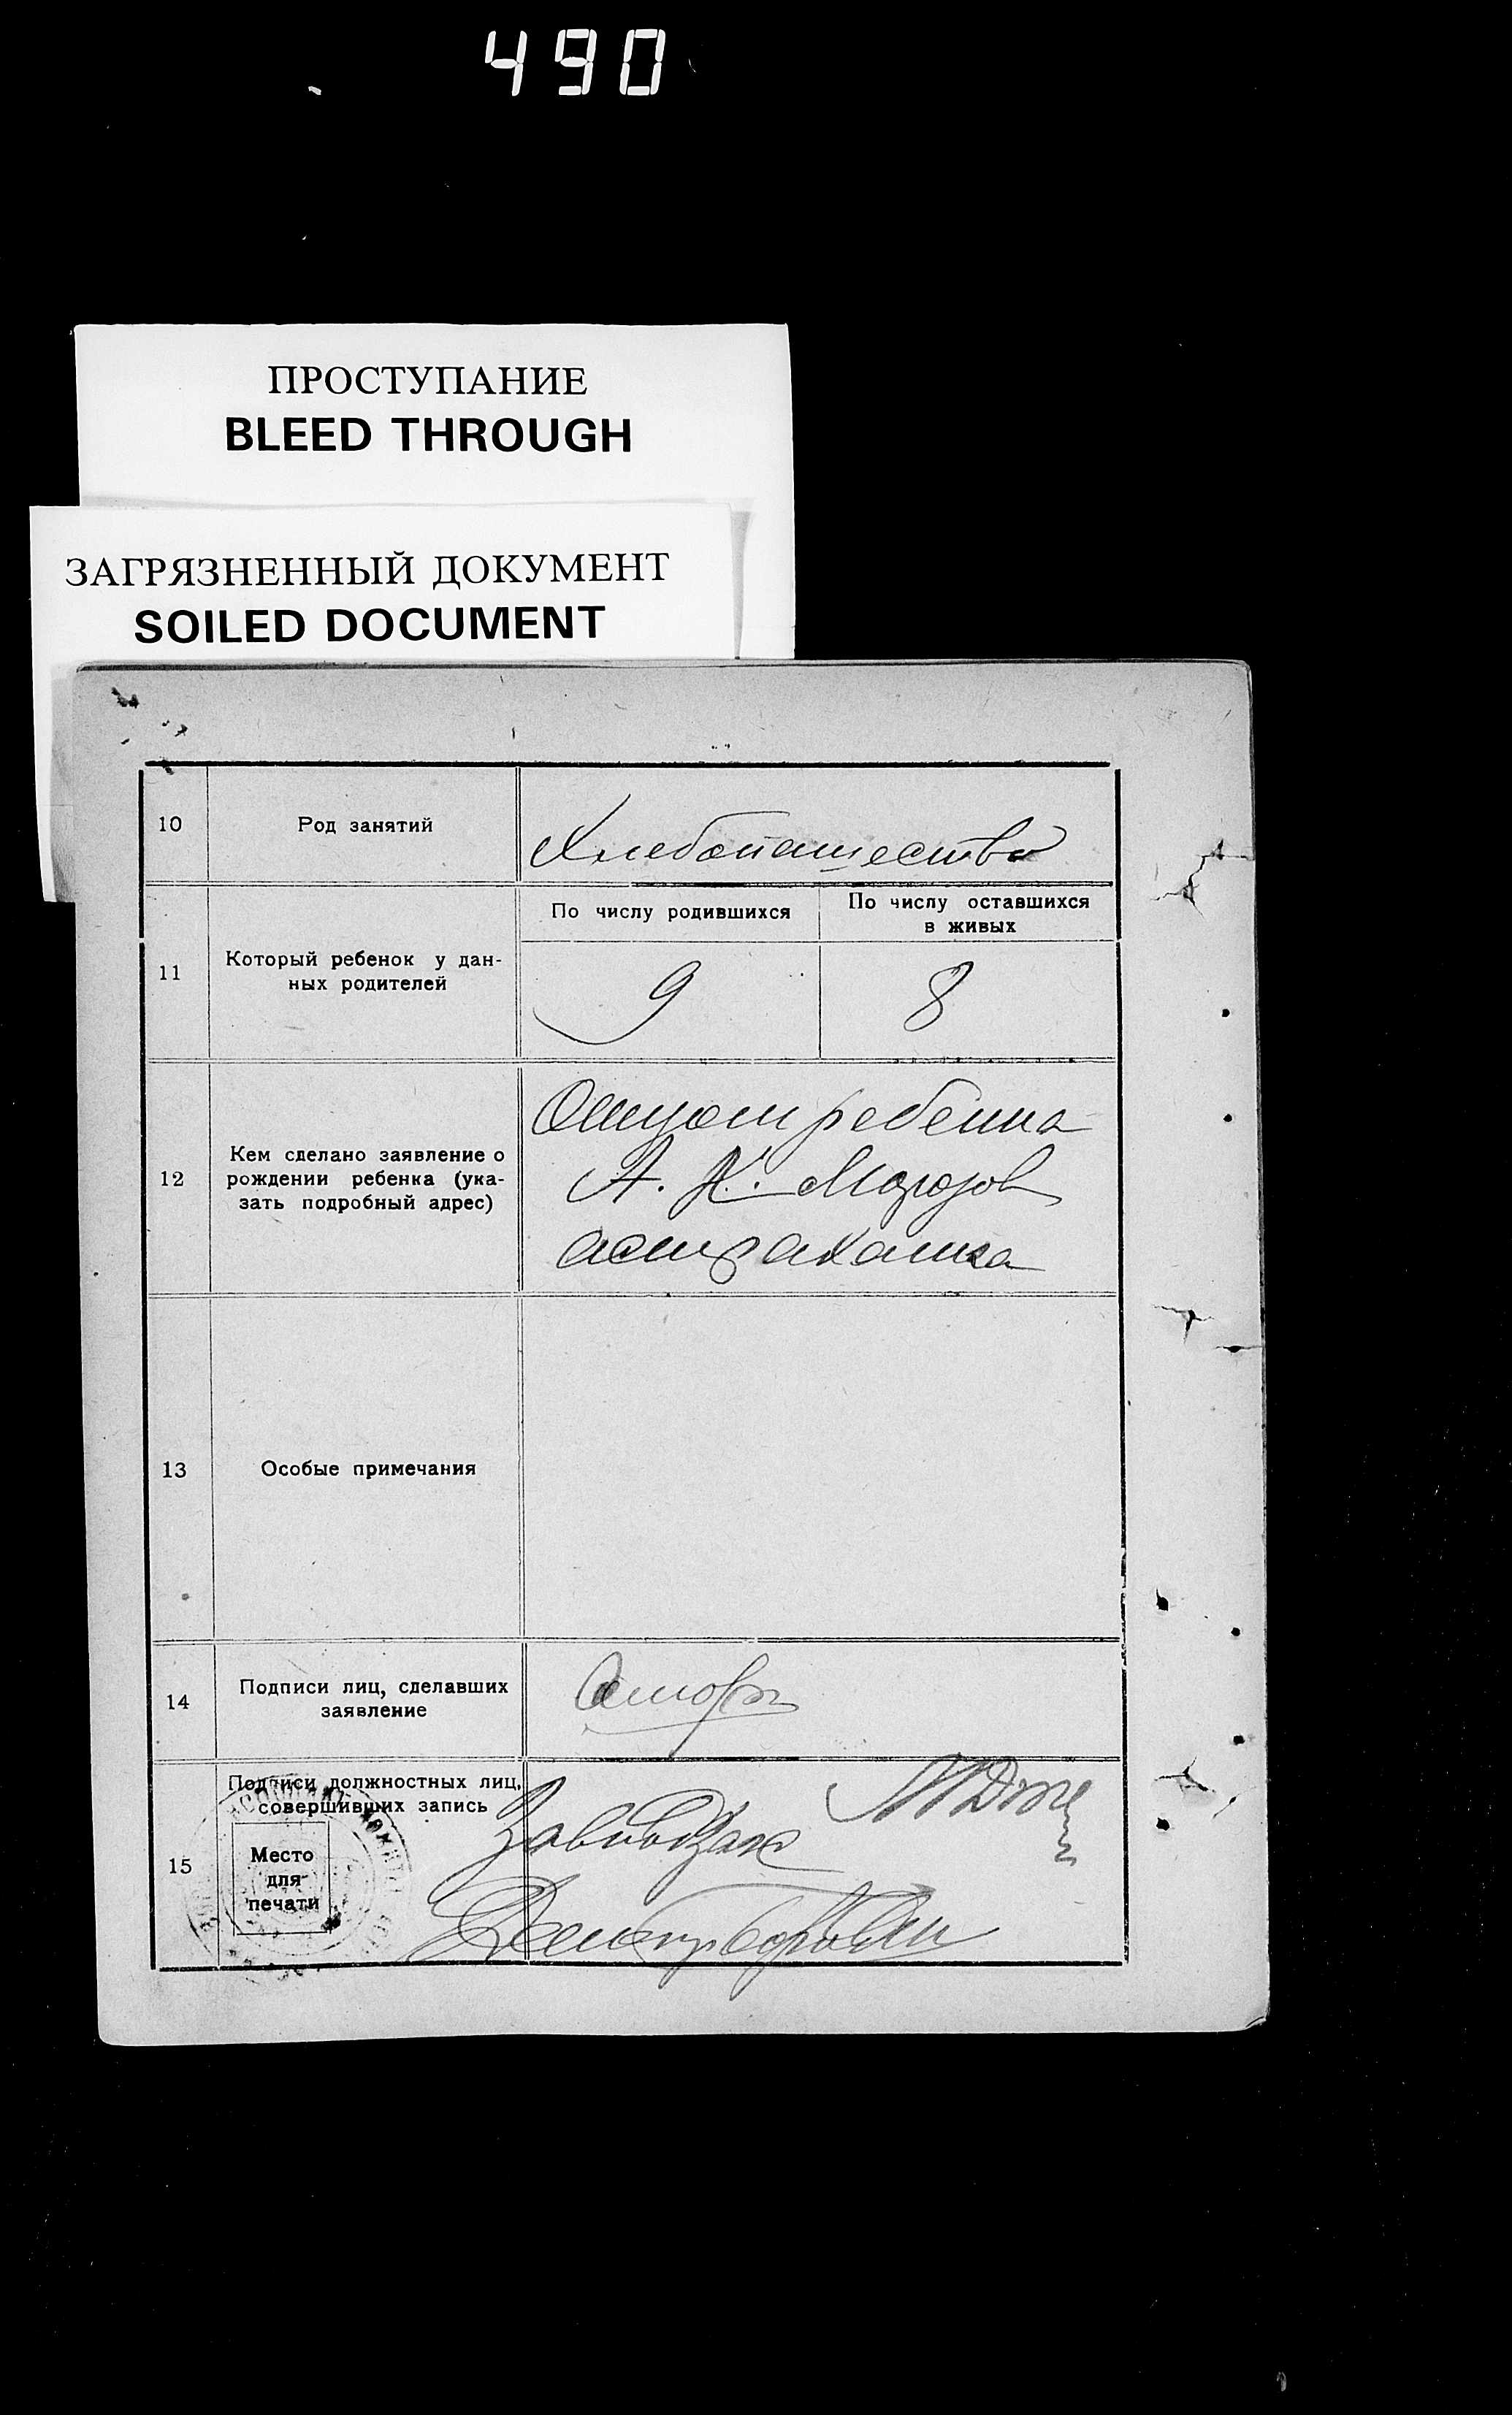 490
ПРОСТУПАНИЕ
BLEED THROUGH
ЗАГРЯЗНЕННЫЙ ДОКУМЕНТ
SOILED DOCUMENT
10
Род занятий
Хлебопашество
11
Который ребенок у дан-
ных родителей
По числу родившихся
9
По числу оставшихся
в живых
8
12
Кем сделано заявление о
рождении ребенка (ука-
зать подробный адрес)
Отцом ребенка
А. К. Морозов
астраханка
13
Особые примечания
14
Подписи лиц, сделавших
заявление
15
Подписи должностных лиц,
совершивших запись
Место
для
печати